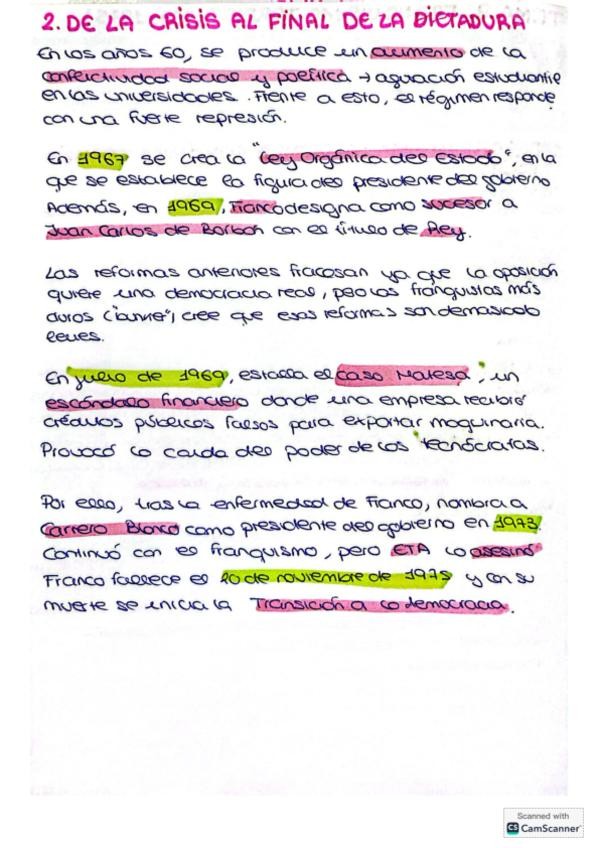 2. DE LA CRISIS AL FINAL DE LA DICTADURA
En los años 60, se produce un aumento de la
conflictividad social y política → agitación estudiantil
en las universidades. Frente a esto, el régimen responde
con una fuerte represión.
En 1967 se crea la "Ley Orgánica del Estado", en la
que se establece la figura del presidente del gobierno
Además, en 1969, Franco designa como sucesor a
Juan Carlos de Borbón con el título de Rey.
Las reformas anteriores fracasan ya que la oposición
quiere una democracia real, pero los franquistas más
duros ("bunker") cree que esas reformas son demasiado
leves.
En julio de 1969, estalla el "caso Matesa", un
escándalo financiero donde una empresa recibió
créditos públicos falsos para exportar maquinaria.
Provocó la caída del poder de los "tecnócratas.
Por ello, tras la enfermedad de Franco, nombra a
Carrero Blanco como presidente del gobierno en 1973.
Continuó con el franquismo, pero ETA lo asesinó
Franco fallece el 20 de noviembre de 1975 y con su
muerte se inicia la Transición a la democracia.
Scanned with
CS CamScanner